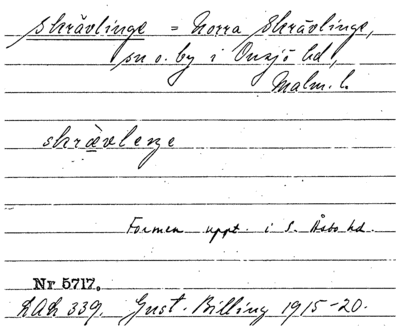 Skrävlinge = Norra Skrävlinge,
sn o. by i Onsjö hd,
Malm. l.
skrævleŋe
Formen uppt. i S. Åsbo hd.
Nr 5717.
LAL 339. Gust. Billing 1915-20.